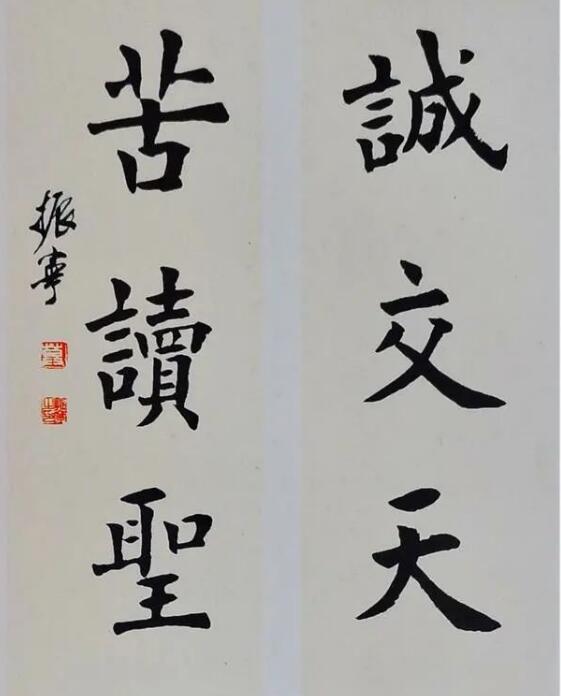 誠交天
苦讀聖
振寧